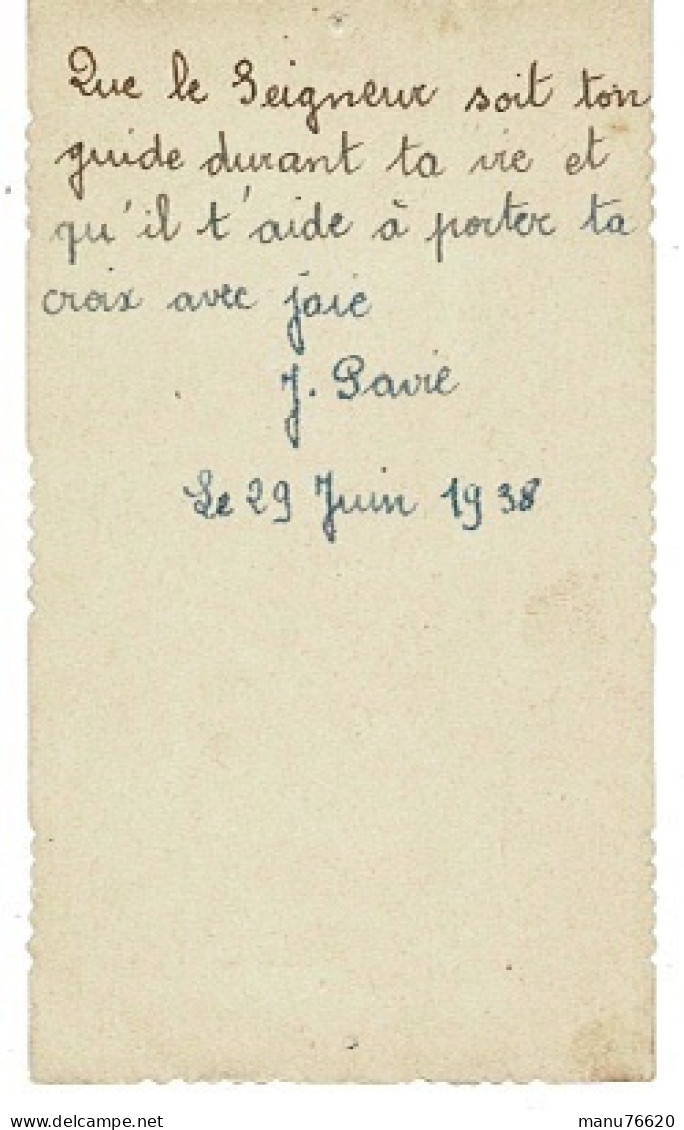 Que le Seigneur soit ton
guide durant ta vie et
qu'il t'aide à porter ta
croix avec joie
J. Pavie
Le 29 Juin 1938
manu76620